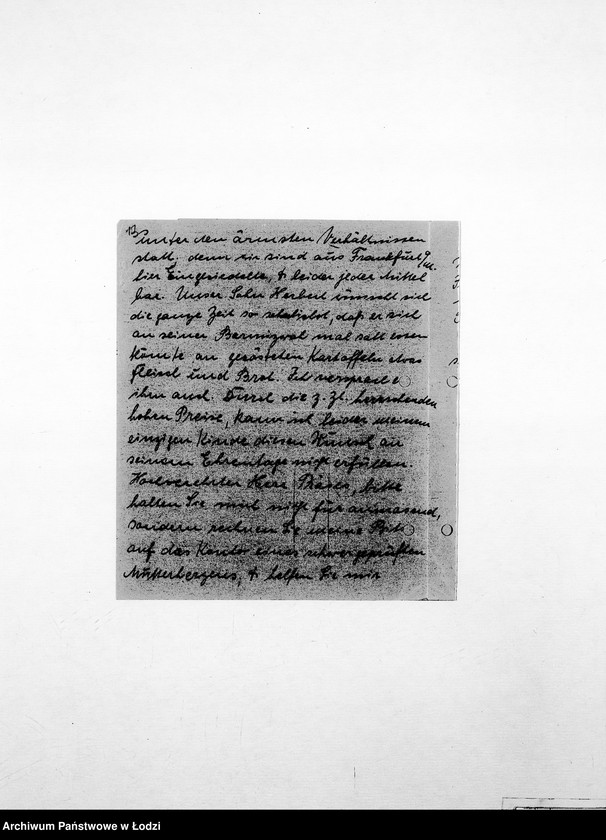 unter den ärmsten Verhältnissen
statt, denn wir sind aus Frankfurt
hier Eingesiedelte, & leider jeder Mittel
bar. Unser Sohn Herbert wünscht sich
die ganze Zeit so sehnlichst, daß er sich
an seiner Barmizwah mal satt essen
könnte an gerösteten Kartoffeln etwas
Fleisch und Brot. Ich versprach es
ihm auch. Durch die z. Zt. herrschenden
hohen Preise, kann ich leider meinem
einzigen Kinde diesen Wunsch an
seinem Ehrentage nicht erfüllen.
Hochverehrter Herr Präses, bitte
halten Sie mich nicht für anmasend,
sondern rechnen Sie meine Bitte
auf das Konto eines schwergeprüften
Mutterherzens, & helfen Sie mir
Archiwum Państwowe w Łodzi